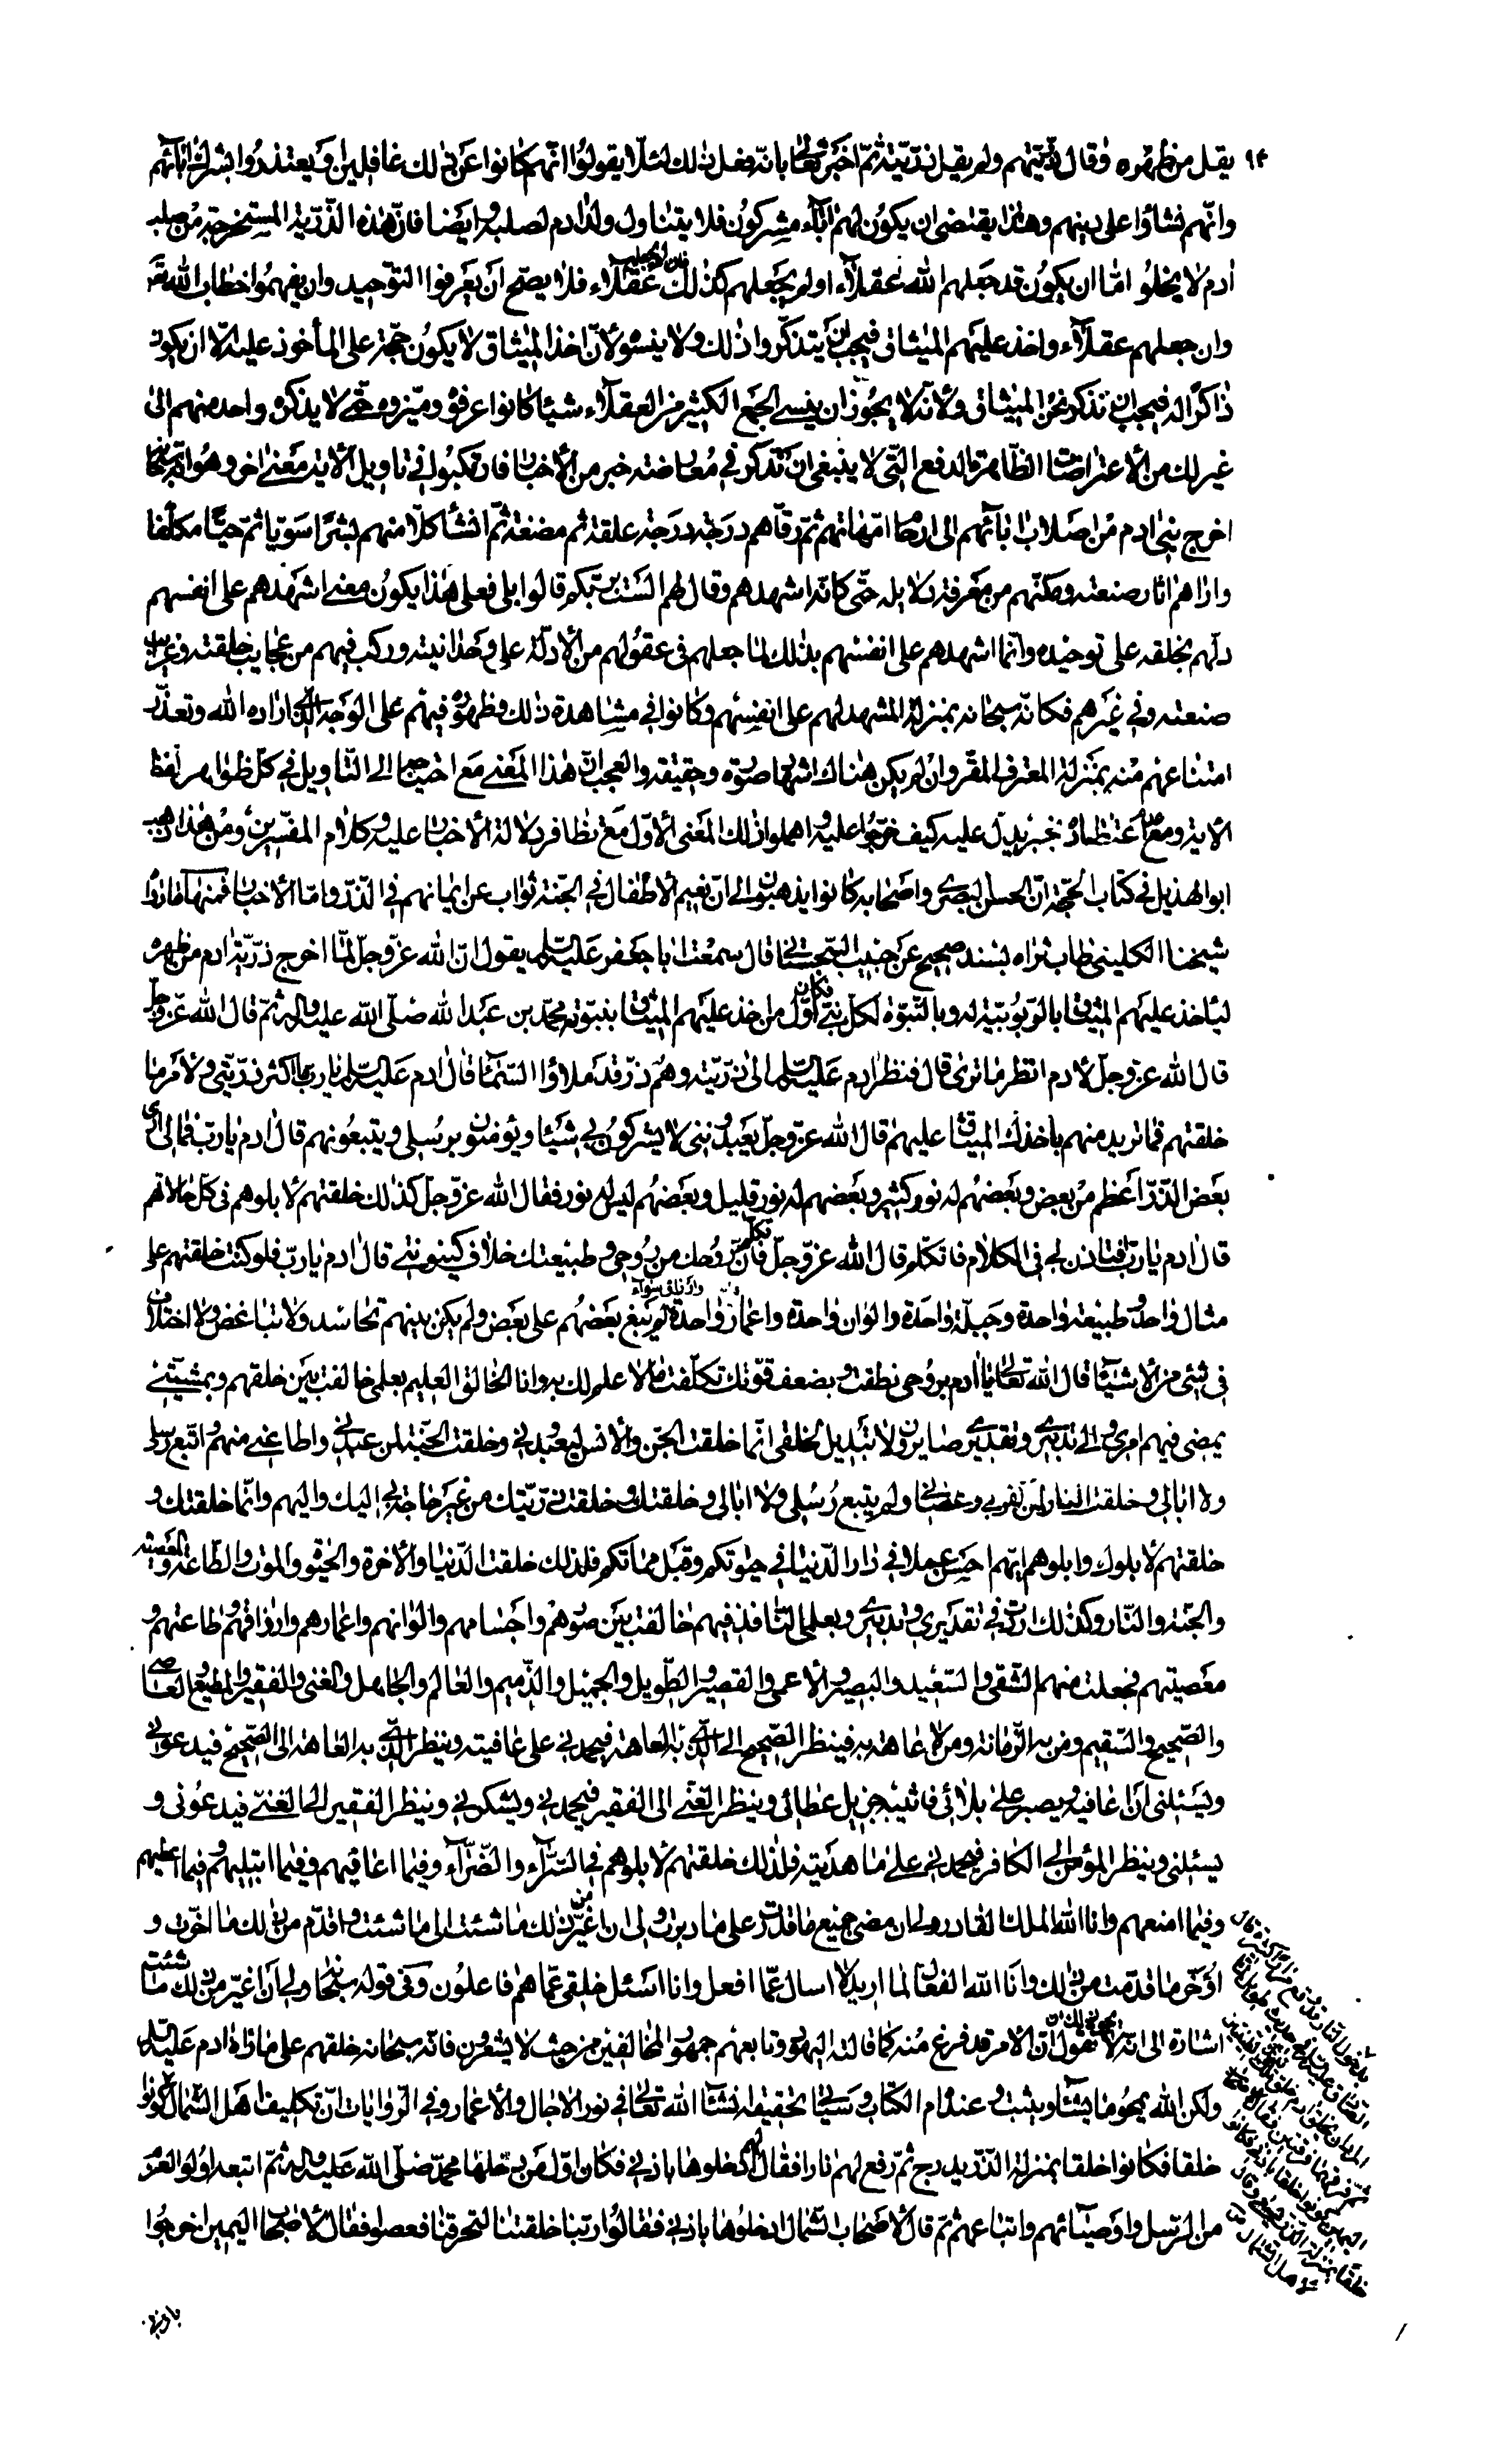 ٩٤ يقل من ظهره وقال ذريتهم ولم يقل ذريته ثم اخبر تعالى بانه فعل ذلك لئلا يقولوا انهم كانوا عن ذلك غافلين ويعتذروا بشرك ابائهم
وانهم نشاؤا على دينهم وهذا يقتضى ان يكون لهم اباء مشركون فلا يتناول ولد ادم لصلبه وايضا فان هذه الذرية المستخرجة من صلب
ادم لا يخلو اما ان يكون قد جعلهم الله عقلاء اولم يجعلهم كذلك فان لم يجعلهم عقلاء فلا يصح ان يعرفوا التوحيد وان يفهموا خطاب الله تع
وان جعلهم عقلاء واخذ عليهم الميثاق فيجب ان يتذكروا ذلك ولا ينسوه لان اخذ الميثاق لا يكون حجة على المأخوذ عليه الا ان يكون
ذاكرا له فيجب ان نذكر نحن الميثاق ولانه لا يجوز ان ينسى الجمع الكثير من العقلاء شيئا كانوا عرفوه وميزوه حتى لا يذكره واحد منهم الى
غير ذلك من الاعتراضات الظاهرة الدفع التى لا ينبغى ان تذكر فى معارضة خبر من الاخبار فارتكبوا فى تاويل الاية معنى اخر وهو انه تعالى
اخرج بنى ادم من اصلاب ابائهم الى ارحام امهاتهم ثم رقاهم درجة درجة علقة ثم مضغة ثم انشأ كلا منهم بشرا سويا ثم حيا مكلفا
واراهم اثار صنعته ومكنهم من معرفة دلايله حتى كانه اشهدهم وقال لهم الست بربكم قالوا بلى فعلى هذا يكون معنى اشهدهم على انفسهم
دلهم بخلقه على توحيده وانما اشهدهم على انفسهم بذلك لما جعلهم فى عقولهم من الادلة على وحدانيته وركب فيهم من عجايب خلقته وغرايب
صنعته وفى غيرهم فكانه سبحانه بمنزلة المشهد لهم على انفسهم وكانوا فى مشاهدة ذلك وظهوره فيهم على الوجه الذى اراده الله وتعذر
امتناعهم منه بمنزلة المعترف المقر وان لم يكن هناك اشهاد صورة وحقيقة والعجب ان هذا المعنى مع احتياجه الى التاويل فى كل ظواهر لفظ
الاية ومع عدم اعتضاده بخبر يدل عليه كيف عرجوا عليه واهملوا ذلك المعنى الاول مع تظافر دلالة الاخبار عليه وكلام المفسرين ومن هذا ذهب
ابو الهذيل فى كتاب الحجة ان الحسن البصرى واصحابه كانوا يذهبون الى ان نعيم الاطفال فى الجنة ثواب عن ايمانهم فى الذر واما الاخبار فمنها ما رواه
شيخنا الكلينى طاب ثراه بسند صحيح عن حبيب السجستانى قال سمعت ابا جعفر عليه السلم يقول ان الله عز وجل لما اخرج ذرية ادم من ظهره
لياخذ عليهم الميثاق بالربوبية له وبالنبوة لكل نبى فكان اول من اخذ عليهم الميثاق بنبوته محمد بن عبد الله صلى الله عليه واله ثم قال الله عز وجل
قال الله عز وجل لادم انظر ماذا ترى قال فنظر ادم عليه السلم الى ذريته وهم ذر قد ملاؤا السماء قال ادم عليه السلم يا رب ما اكثر ذريتى ولامر ما
خلقتهم فما تريد منهم باخذك الميثاق عليهم قال الله عز وجل يعبدوننى لا يشركون بى شيئا ويؤمنون برسلى ويتبعونهم قال ادم يا رب فمالى ارى
بعض الذر اعظم من بعض وبعضهم له نور كثير وبعضهم له نور قليل وبعضهم ليس له نور فقال الله عز وجل كذلك خلقتهم لابلوهم فى كل حالاتهم
قال ادم يا رب فتاذن لى فى الكلام فاتكلم قال الله عز وجل تكلم فان روحك من روحى وطبيعتك خلاف كينونتى قال ادم يا رب فلو كنت خلقتهم على
مثال واحد وطبيعة واحدة وجبلة واحدة والوان واحدة واعمار واحدة وارزاق سواء لم يبغ بعضهم على بعض ولم يكن بينهم تحاسد ولا تباغض ولا اختلاف
فى شئ من الاشياء قال الله تعالى يا ادم بروحى نطقت وبضعف قوتك تكلفت ما لا علم لك به وانا الخالق العليم بعلمى خالفت بين خلقهم وبمشيتى
يمضى فيهم امرى والى تدبيرى وتقديرى صايرون ولا تبديل لخلقى انما خلقت الجن والانس ليعبدونى وخلقت الجنة لمن عبدنى واطاعنى منهم واتبع رسلى
ولا ابالى وخلقت النار لمن كفر بى وعصانى ولم يتبع رسلى ولا ابالى وخلقتك وخلقت ذريتك من غير حاجة بى اليك واليهم وانما خلقتك و
خلقتهم لابلوك وابلوهم ايهم احسن عملا فى دار الدنيا فى حيوتكم وقبل مماتكم فلذلك خلقت الدنيا والاخرة والحيوة والموت والطاعة والمعصية
والجنة والنار وكذلك اردت فى تقديرى وتدبيرى وبعلمى النافذ فيهم خالفت بين صورهم واجسامهم والوانهم واعمارهم وارزاقهم وطاعتهم و
معصيتهم فجعلت منهم الشقى والسعيد والبصير والاعمى والقصير والطويل والجميل والذميم والعالم والجاهل والغنى والفقير والمطيع والعاصى
والصحيح والسقيم ومن به الزمانة ومن لا عاهة به فينظر الصحيح الى الذى به العاهة فيحمدنى على عافيته وينظر الذى به العاهة الى الصحيح فيدعونى
ويسئلنى ان اعافيه ويصبر على بلائى فاثيبه جزيل عطائى وينظر الغنى الى الفقير فيحمدنى ويشكرنى وينظر الفقير الى الغنى فيدعونى و
يسئلنى وينظر المؤمن الى الكافر فيحمدنى على ما هديته فلذلك خلقتهم لابلوهم فى السراء والضراء وفيما اعافيهم وفيما ابتليهم وفيما اعطيهم
وفيما امنعهم وانا الله الملك القادر ولى ان امضى جميع ما قدرت على ما دبرت ولى ان اغير من ذلك ما شئت الى ما شئت واقدم من ذلك ما اخرت و
اؤخر ما قدمت من ذلك وانا الله الفعال لما اريد لا اسال عما افعل وانا اسئل خلقى عما هم فاعلون وفى قوله سبحانه ولى ان اغير من ذلك ما شئت
اشارة الى انه لا يجوز لك ان تقول ان الامر قد فرغ منه كما قالته اليهود وتابعهم جمهور المخالفين من حيث لا يشعرون فانه سبحانه خلقهم على ما راه ادم عليه السلم
ولكن الله يمحو ما يشاء ويثبت وعنده ام الكتاب وسياتى تحقيقه انشاء الله تعالى فى نور الاجال والاعمار وفى الروايات ان تكليف اهل الشمال كونوا
خلقا فكانوا خلقا بمنزلة الذر يدرج ثم رفع لهم نارا فقال لهم ادخلوها باذنى فكان اول من دخلها محمد صلى الله عليه واله ثم اتبعه اولو العزم
من الرسل واوصيائهم واتباعهم ثم قال لاصحاب الشمال ادخلوها باذنى فقالوا ربنا خلقتنا لتحرقنا فعصوا فقال لاصحاب اليمين اخرجوا
باذنى